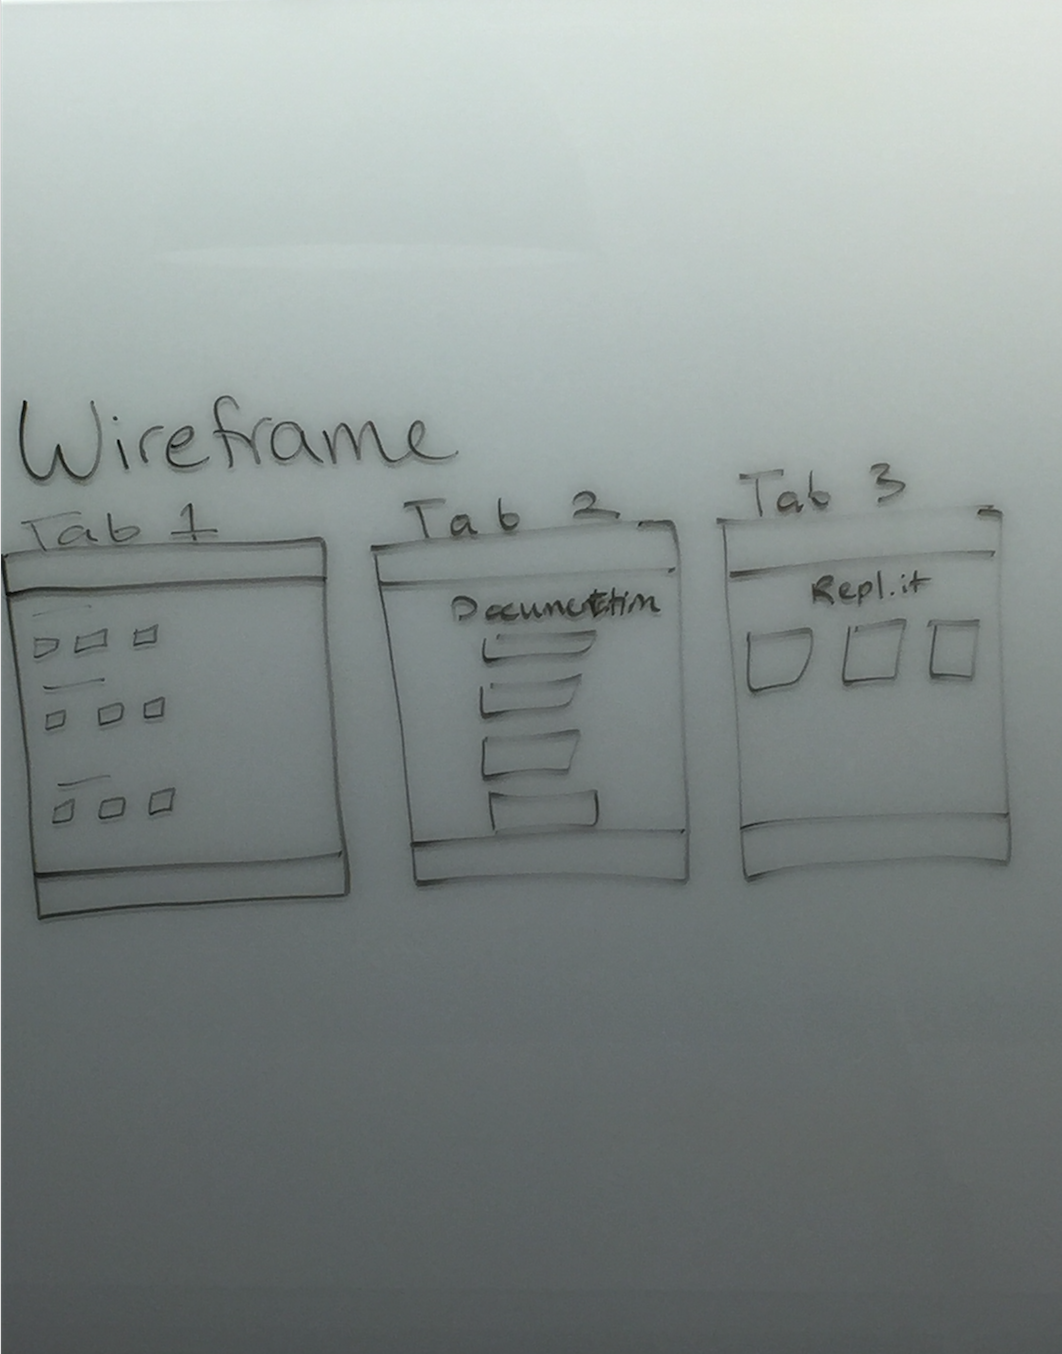 Wireframe
Tab 1
Tab 2
Tab 3
Documentation
Repl.it